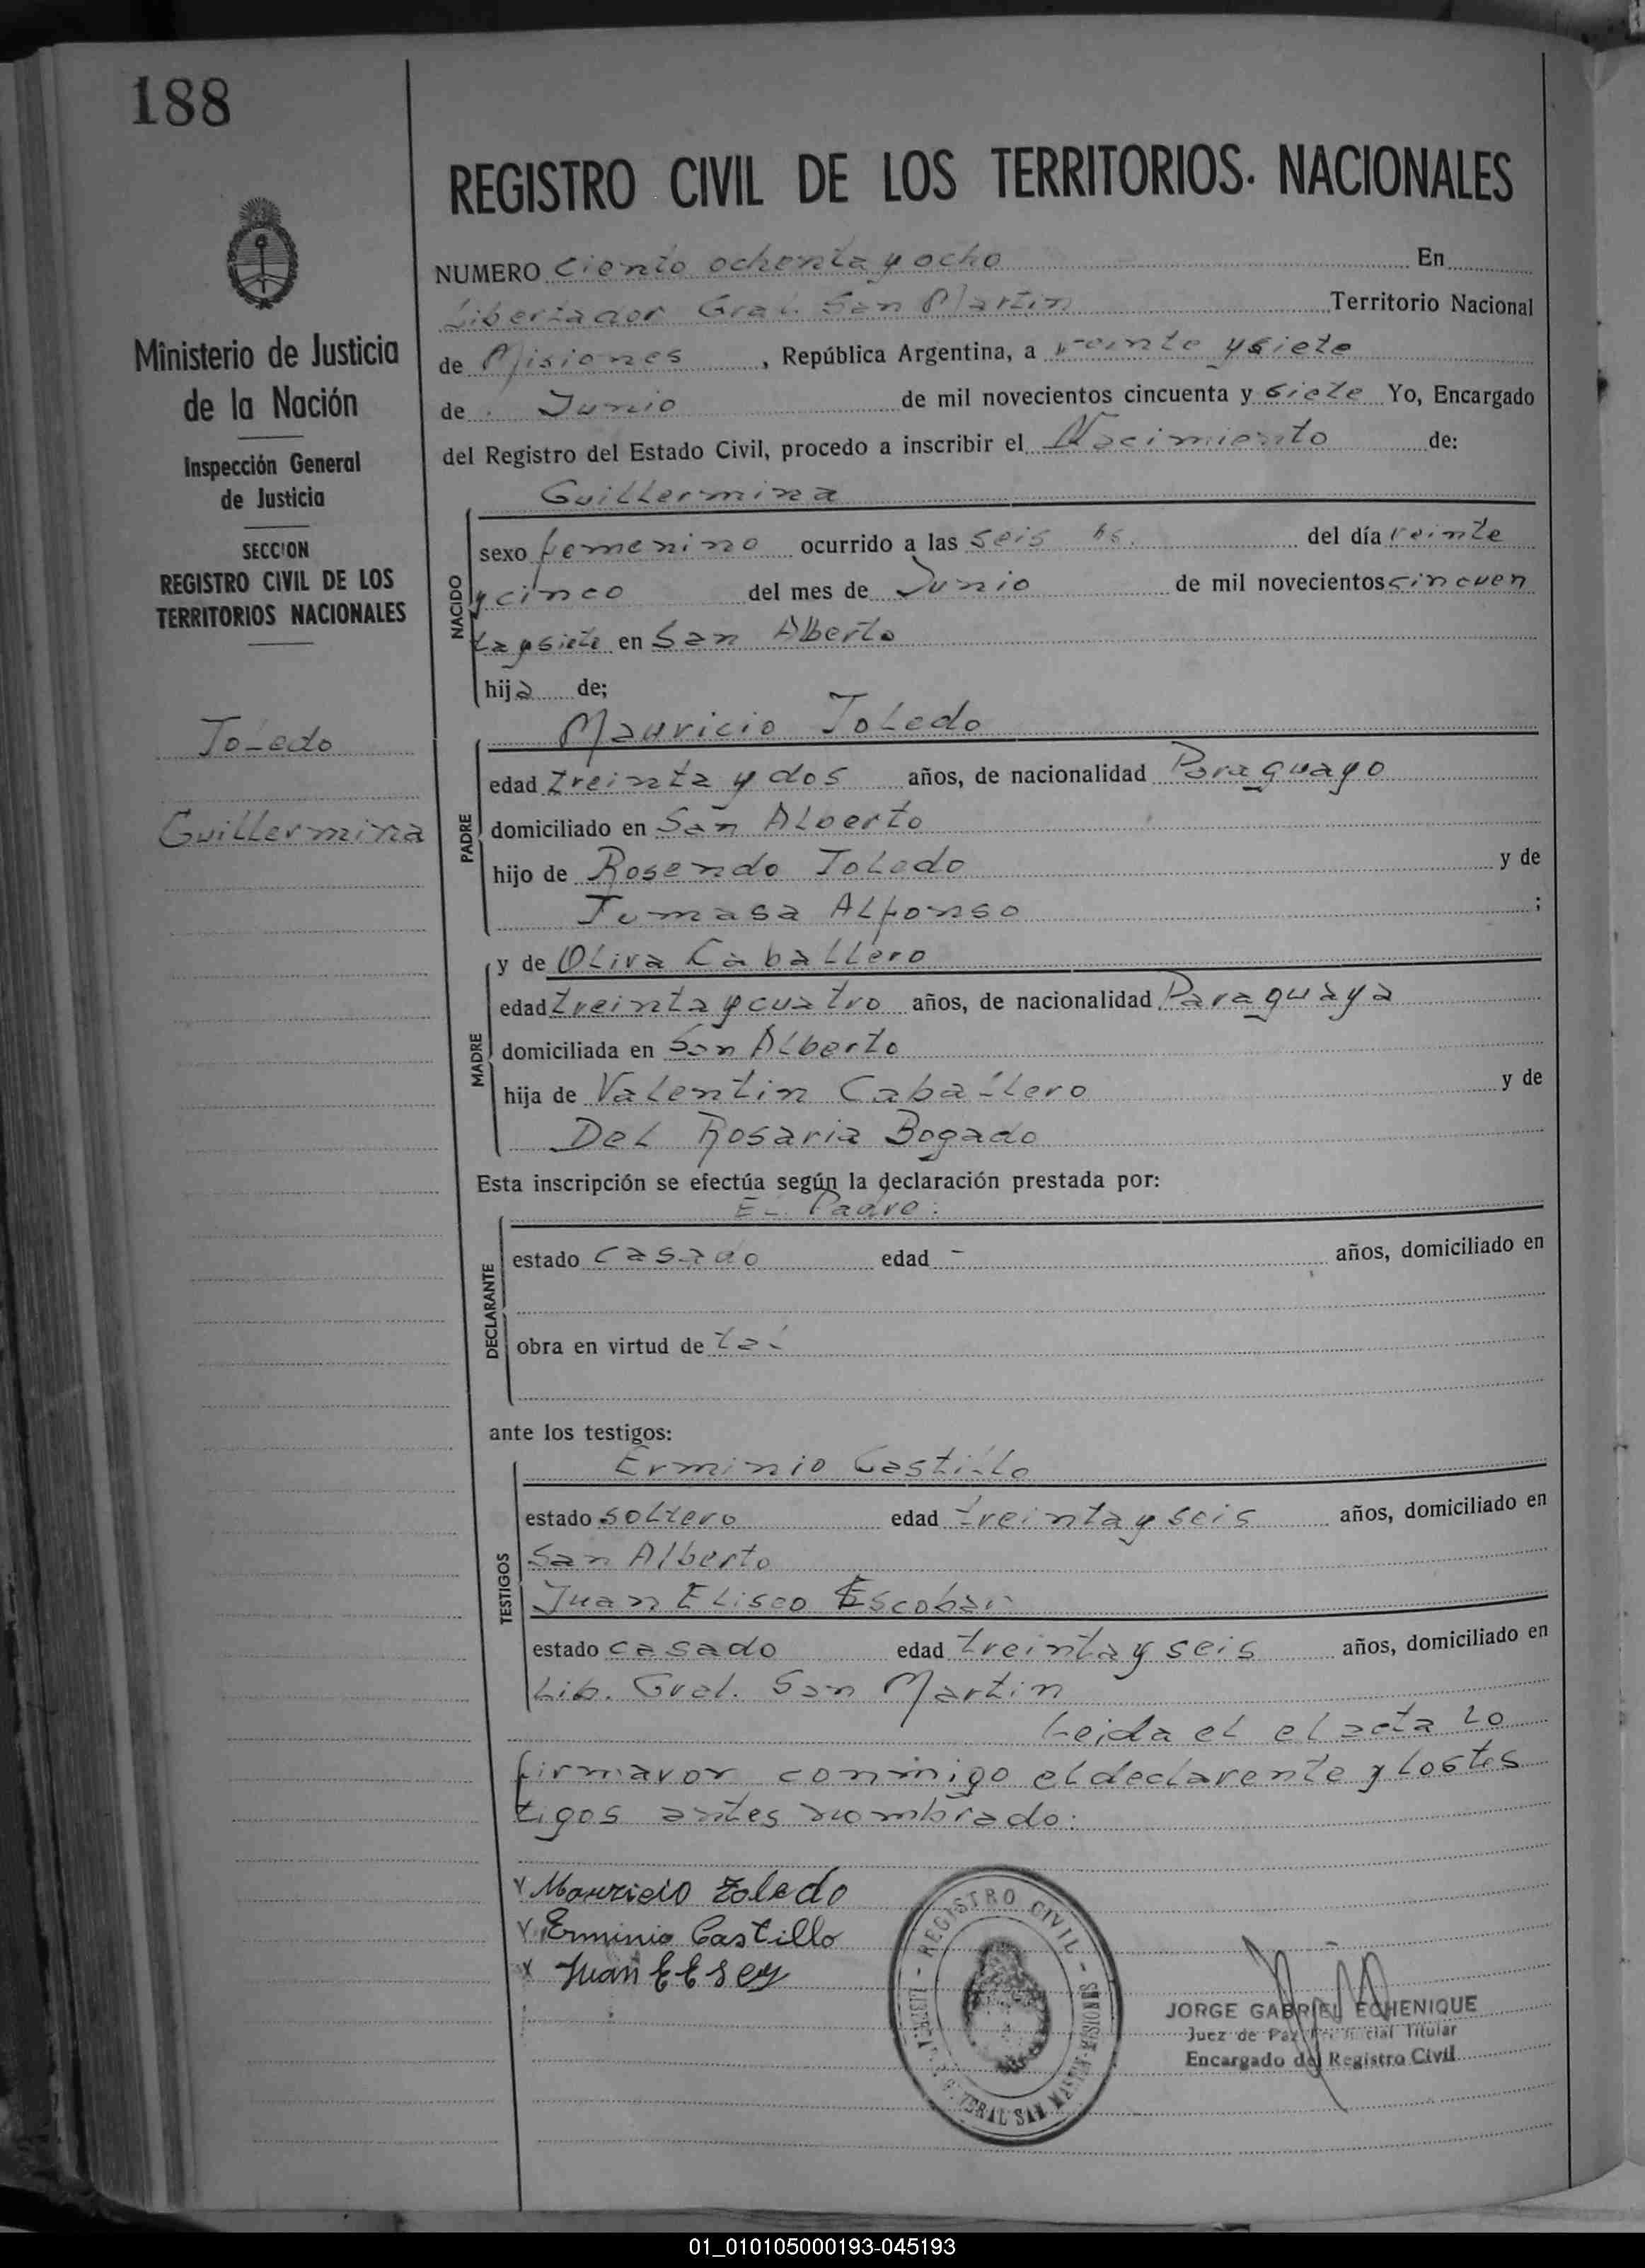 188
REGISTRO CIVIL DE LOS TERRITORIOS. NACIONALES
NUMERO Ciento ochenta y ocho En
Libertador Gral. San Martin Territorio Nacional
de Misiones, República Argentina, a veinte y siete
de Junio de mil novecientos cincuenta y siete Yo, Encargado
del Registro del Estado Civil, procedo a inscribir el Nacimiento de:
Guillermina
Ministerio de Justicia
de la Nación
Inspección General
de Justicia
SECCION
REGISTRO CIVIL DE LOS
TERRITORIOS NACIONALES
Toledo
Guillermina
NACIDO
sexo femenino ocurrido a las seis hs. del día veinte
y cinco del mes de Junio de mil novecientos cincuen
ta y siete en San Alberto
hija de;
Mauricio Toledo
PADRE
edad treinta y dos años, de nacionalidad Paraguayo
domiciliado en San Alberto
hijo de Rosendo Toledo y de
Tomasa Alfonso ;
MADRE
y de Oliva Caballero
edad treinta y cuatro años, de nacionalidad Paraguaya
domiciliada en San Alberto
hija de Valentin Caballero y de
Del Rosaria Bogado
Esta inscripción se efectúa según la declaración prestada por:
El Padre.
DECLARANTE
estado casado edad - años, domiciliado en
obra en virtud de tal
ante los testigos:
Erminio Castillo
TESTIGOS
estado soltero edad treinta y seis años, domiciliado en
San Alberto
Juan Eliseo Escobar
estado casado edad treinta y seis años, domiciliado en
Lib. Gral. San Martin
Leida el el acta lo
firmavor conmigo el declarente y los tes
tigos antes nombrado:
x Mauricio Toledo
x Erminio Castillo
x Juan E
REGISTRO CIVIL - MISIONES - LIBERTADOR GENERAL SAN MARTIN
JORGE GABRIEL ECHENIQUE
Juez de Paz Titular
Encargado del Registro Civil
01_010105000193-045193